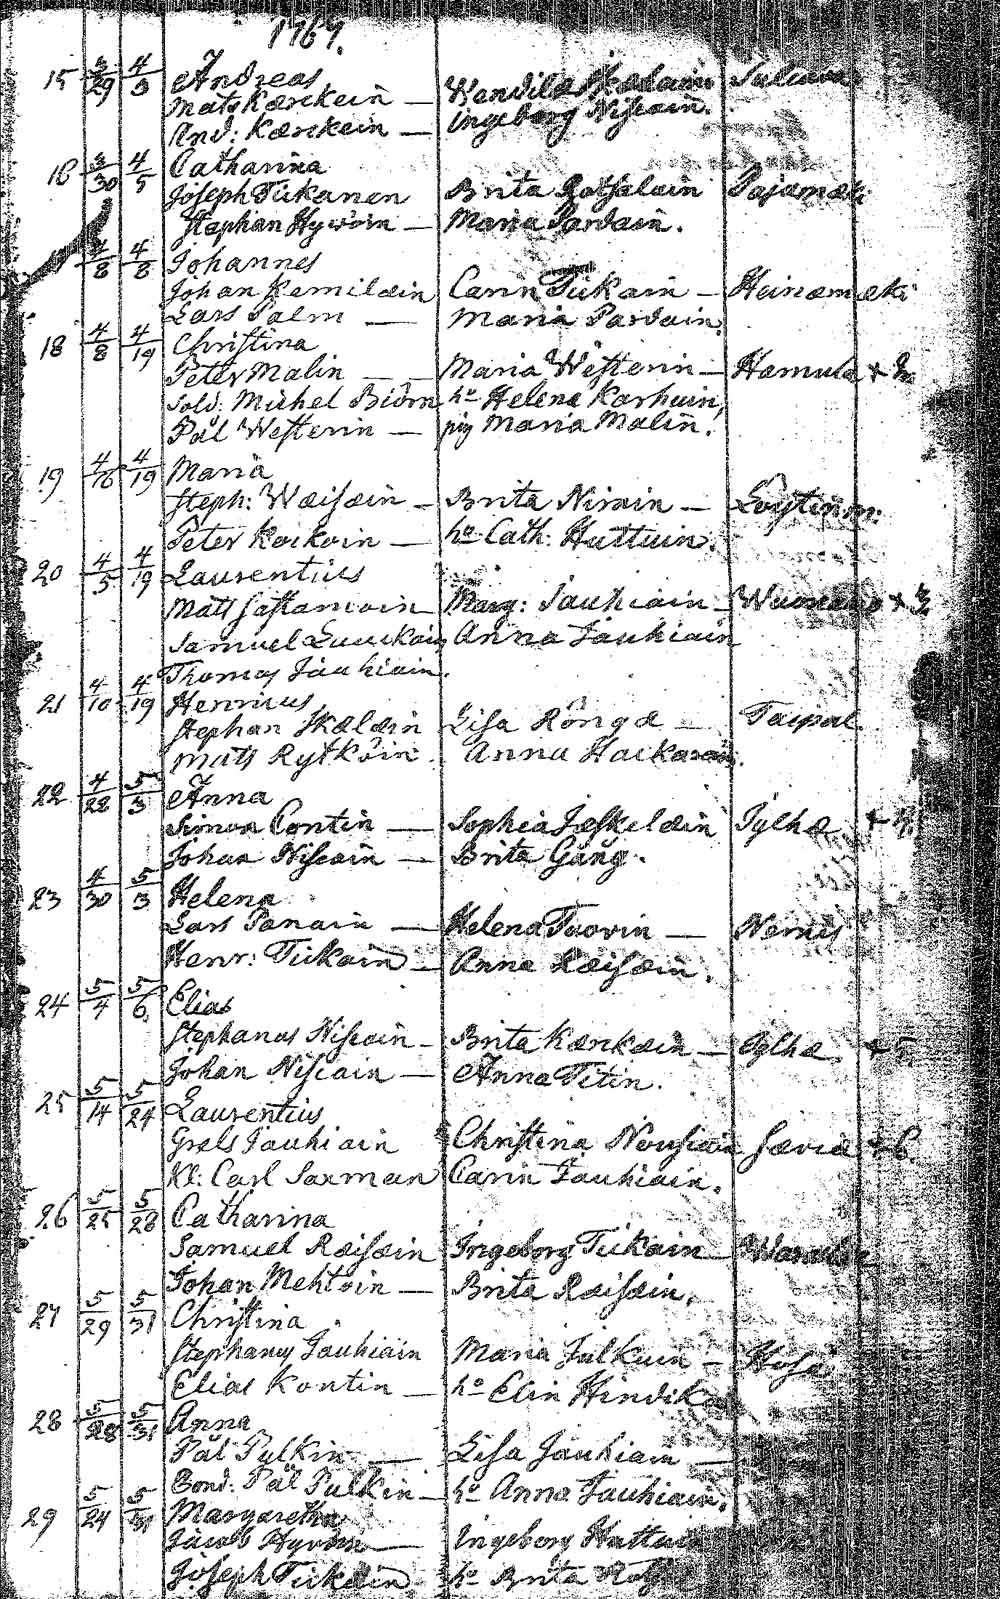 1767.
15 3/29 4/3 Andreas
Mats Kærckein — Wendila Skælain Saluva
And: Kærckein — Ingeborg Nissain.
16 3/30 4/5 Catharina
Joseph Tikanen Brita Rotsalain Pajamæki
Staphan Hyvöin — Maria Pardain.
4/8 4/8 Johannes
Johan Kemiläin Carin Tikain — Heinæmæki
Lars Palm — Maria Pardain
18 4/8 4/19 Christina
Peter Malin — Maria Westerin — Hamula +
Sold: Michel Biörn ho Helena Karhuin,
Pål Westerin — pig Maria Malin.
19 4/16 4/19 Maria
Steph: Wæisæin — Brita Niroin — Löytinm:
Peter Koikoin — ho Cath: Huttuin.
20 4/5 4/19 Laurentius
Matts Sastamoin Marg: Jauhiain —
Samuel Luuckoin Anna Jauhiain
Thomas Jauhiain.
21 4/10 4/19 Henricus
Stephan Skælæin Lisa Rönga — Taipal
Mats Rytköin. Anna Hackarain.
22 4/28 5/3 Anna
Simon Contin — Sophia Jæskelæin Jylhæ +
Johan Nissain — Brita Gång.
23 4/30 5/3 Helena
Lars Panain — Helena Tuovin — Nemis
Henr: Tikain — Anna Ræisæin.
24 5/4 5/6 Elias
Stephanus Nissain — Brita Kærckæin — Jylhæ +
Johan Nissain — Anna Titin.
25 5/14 5/24 Laurentius
Grels Jauhiain Christina Nousiain Savia +
Kl: Carl Saxman Carin Jauhiain.
26 5/25 5/28 Catharina
Samuel Ræisæin Ingeborg Tikain —
Johan Mehtöin — Brita Ræisæin.
27 5/29 5/31 Christina
Stephanus Jauhiain Maria Julkuin —
Elias Kontin — ho Elin Hindik
28 5/28 5/31 Anna
Pål Pulkin — Lisa Jauhiain —
Bond: Pål Pulkin — ho Anna Jauhiain.
29 5/24 5/31 Margaretha
Jacob Hyvöin — Ingeborg Huttuin
Joseph Tikain — ho Brita